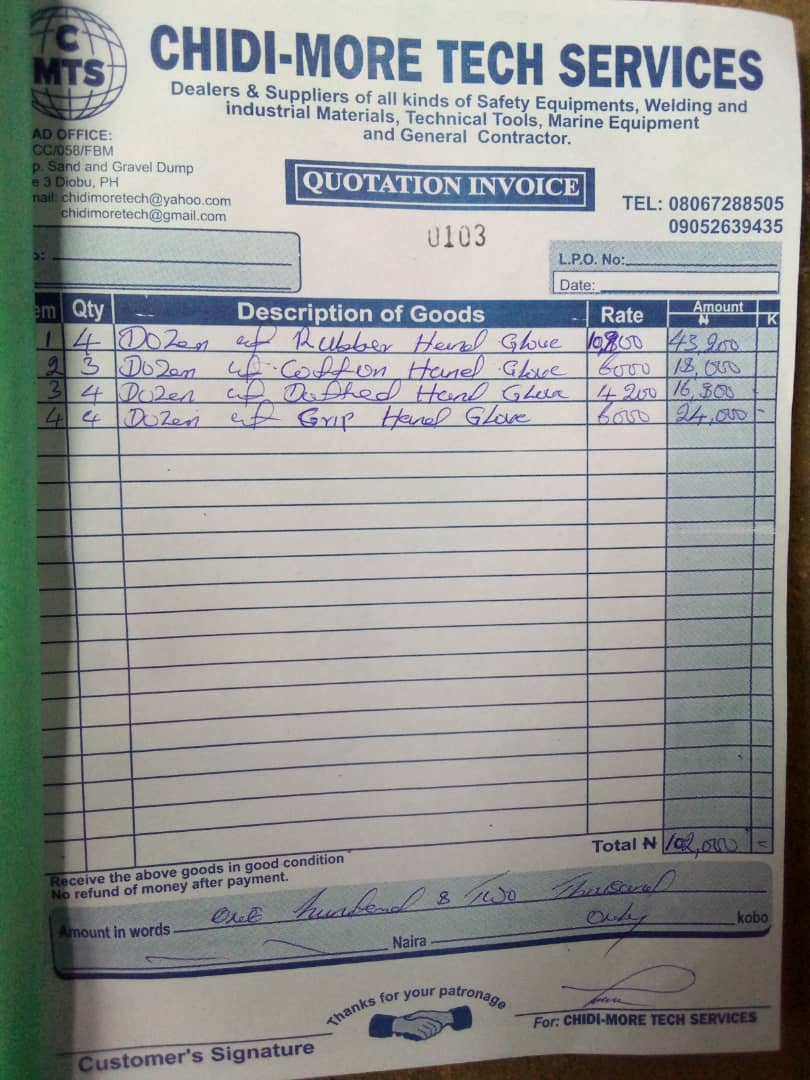 C
MTS
CHIDI-MORE TECH SERVICES
Dealers & Suppliers of all kinds of Safety Equipments, Welding and
industrial Materials, Technical Tools, Marine Equipment
and General Contractor.
AD OFFICE:
CC/058/FBM
p. Sand and Gravel Dump
e 3 Diobu, PH
mail: chidimoretech@yahoo.com
chidimoretech@gmail.com
QUOTATION INVOICE
TEL: 08067288505
09052639435
0103
L.P.O. No:
Date:
em Qty Description of Goods Rate Amount
₦ K
1 4 Dozen of Rubber Hand Glove 10,800 43,200
2 3 Dozen of Cotton Hand Glove 6000 18,000
3 4 Dozen of Hand Glove 4,200 16,800
4 4 Dozen of Grip Hand Glove 6000 24,000 -
Total ₦ 102,000 =
Receive the above goods in good condition
No refund of money after payment.
Amount in words One hundred & Two Thousand
Naira Only kobo
Thanks for your patronage
For: CHIDI-MORE TECH SERVICES
Customer's Signature